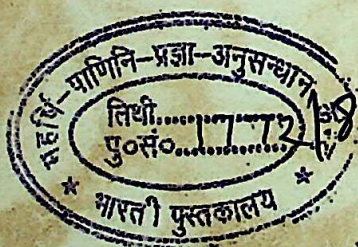 महर्षि-पाणिनि-प्रज्ञा-अनुसन्धान
तिथी..............
पु०सं०.1772
* भारती पुस्तकालय *